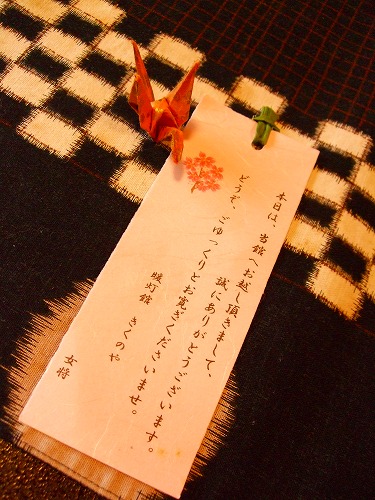 本日は、当館へお越し頂きまして、
誠にありがとうございます。
どうぞ、ごゆっくりとお寛ぎくださいませ。
暖灯館　きくのや
女将